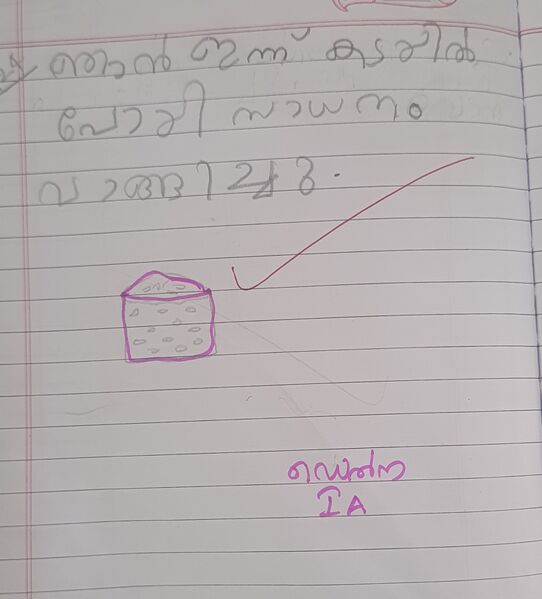 ഞാൻ ഇന്ന് കടയിൽ
പോയി സാധനം
വാങ്ങിച്ചു.
IA